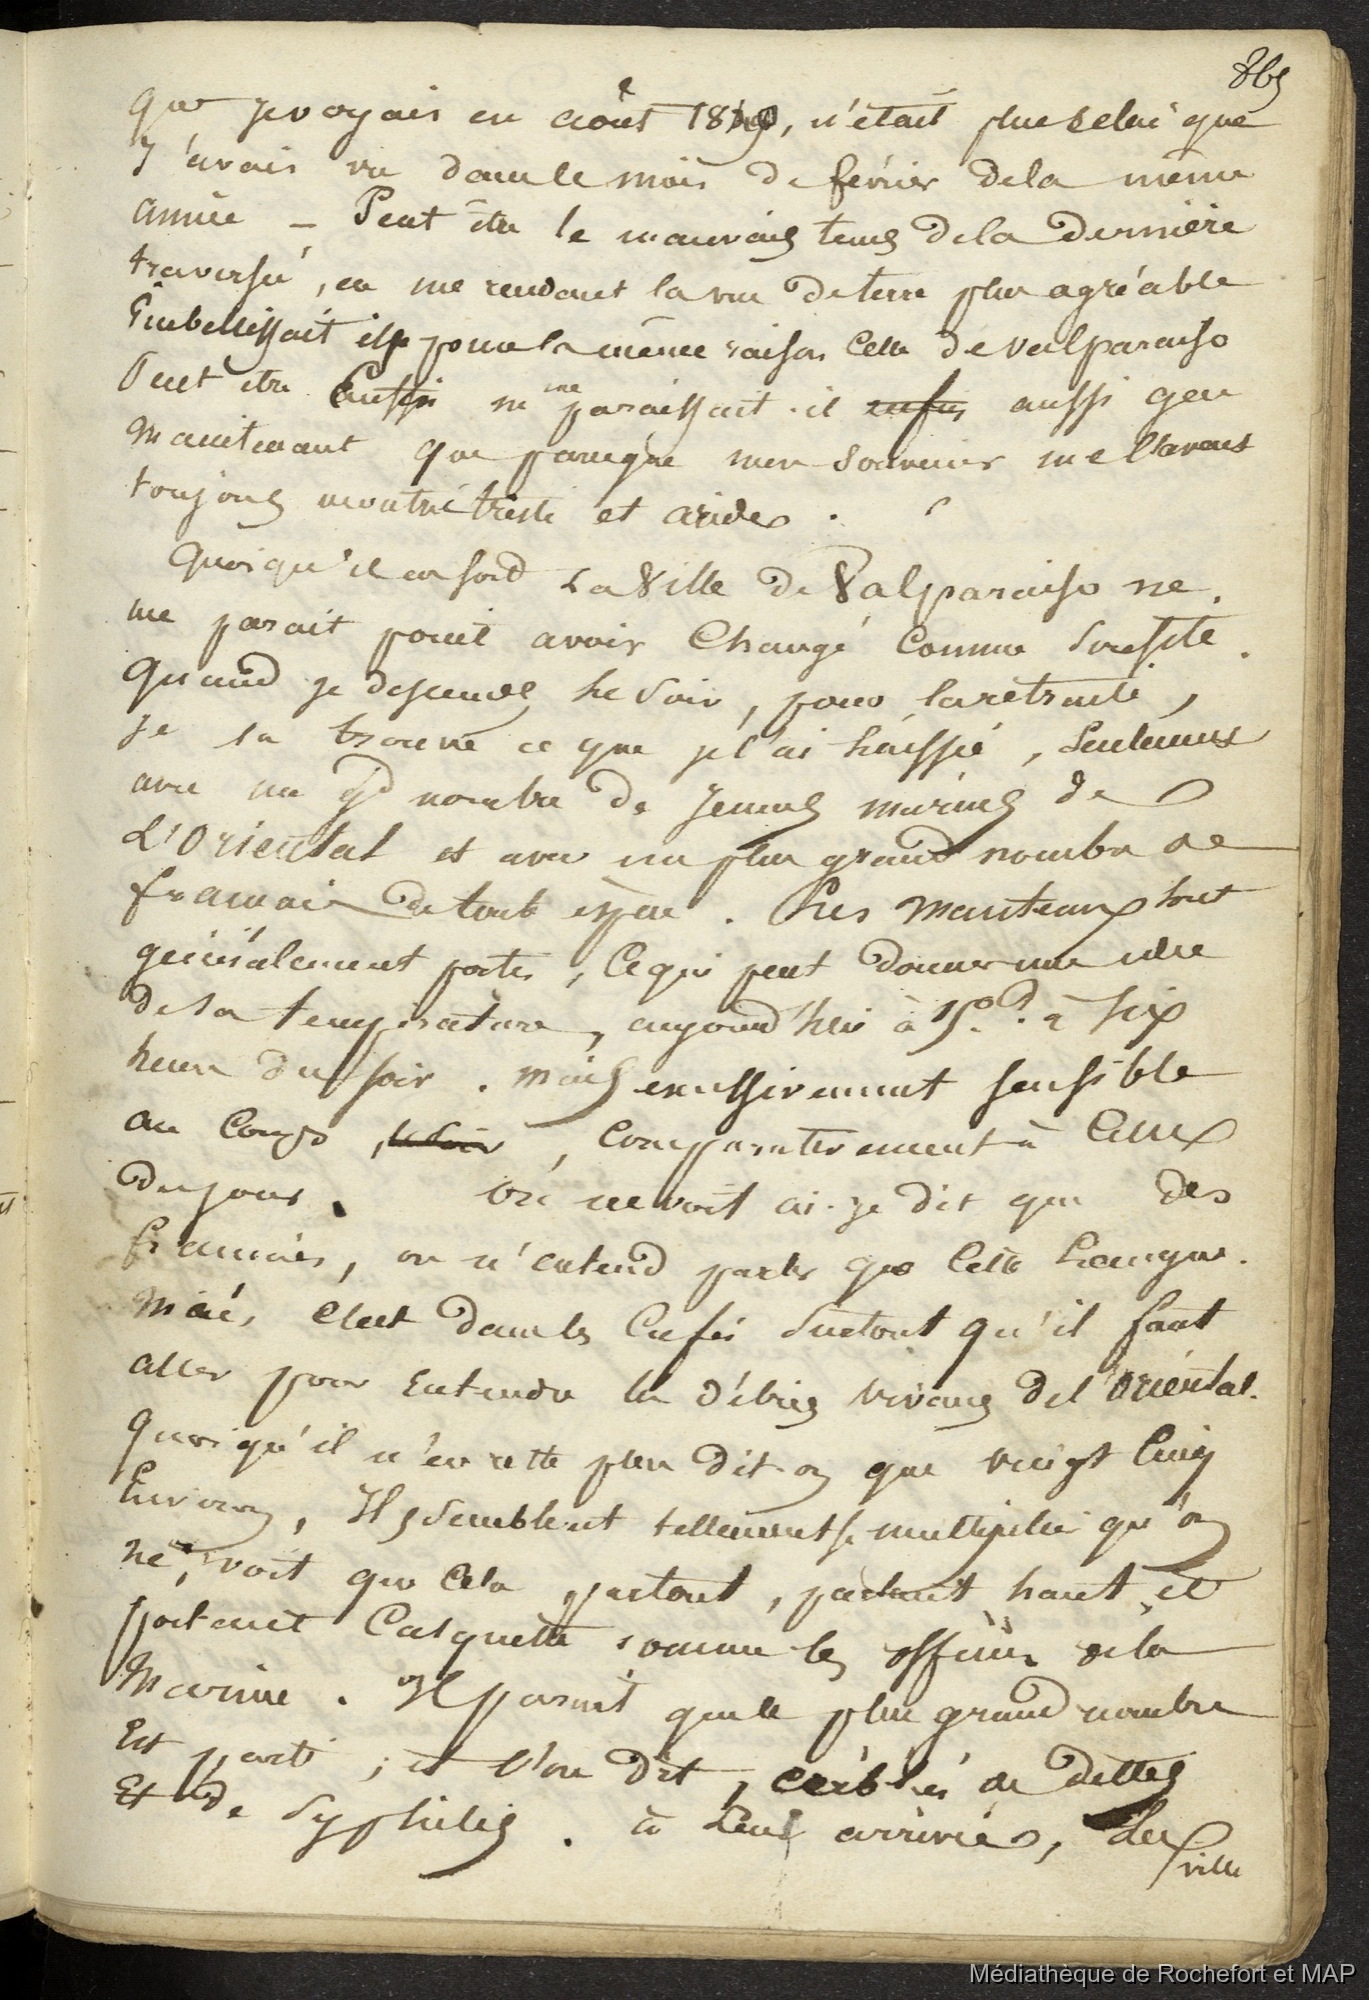 869
que je voyais en août 1840, n'était plus celui que
J'avais vu dans le mois de février de la même
année _ Peut être le mauvais tems de la dernière
traversée, en me rendant la vue de terre plus agréable
Embellissait il pour la même raison celle de valparaiso
Peut être Enfin ne me paraissait-il enfin aussi gai
maintenant que parceque mon souvenir me l'avait
toujours montré triste et aride.
Quoiqu'il en soit La Ville de Valparaiso ne
me parait point avoir Changé Comme Surface.
Quand je descends le Soir, pour la retraite,
Je la trouve ce que je l'ai laissée, seulement
avec un gd nombre de Jeunes marins de
L'Oriental et avec un plus grand nombre de
français de toute espèce. Les manteaux sont
généralement portés, Ce qui peut donner une idée
de la température, aujourd'hui à 15.d. à six
heures du soir. mais excessivement sensible
au Corps, le soir, Comparativement à Ceux
du jour. On ne voit ai-je dit que des
français, on n'entend parler que Cette Langue.
Mais, C'est dans les Cafés Surtout qu'il faut
aller pour Entendre les débris vivans de l'Oriental.
Quoiqu'il n'en reste plus dit-on que vingt Cinq
Environ, Ils Semblent tellement se multiplier qu'on
ne voit que Cela partout, parlant haut et
portant Casquette comme les officiers de la
Marine. Il parait que le plus grand nombre
Est parti ; et l'on dit, criblés de dettes
Et de Syphilis. à Leur arrivée, La
ville
Médiathèque de Rochefort et MAP